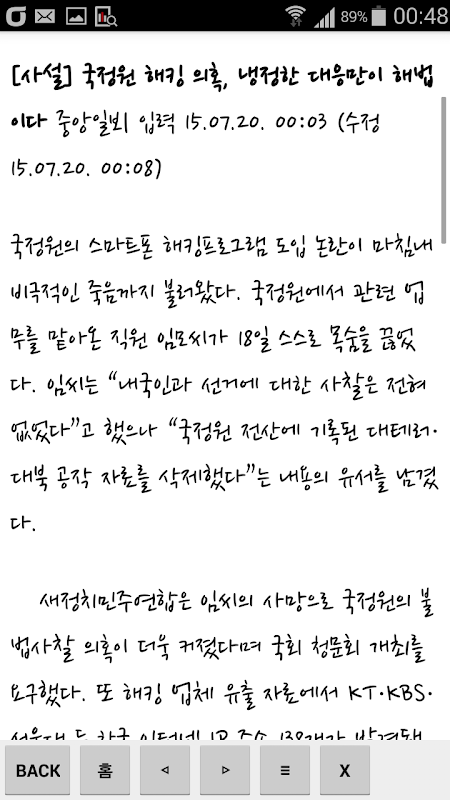 89% 00:48
[사설] 국정원 해킹 의혹, 냉정한 대응만이 해법
이다 중앙일보| 입력 15.07.20. 00:03 (수정
15.07.20. 00:08)
국정원의 스마트폰 해킹프로그램 도입 논란이 마침내
비극적인 죽음까지 불러왔다. 국정원에서 관련 업
무를 맡아온 직원 임모씨가 18일 스스로 목숨을 끊었
다. 임씨는 “내국인과 선거에 대한 사찰은 전혀
없었다”고 했으나 “국정원 전산에 기록된 대테러·
대북 공작 자료를 삭제했다”는 내용의 유서를 남겼
다.
새정치민주연합은 임씨의 사망으로 국정원의 불
법사찰 의혹이 더욱 커졌다며 국회 청문회 개최를
요구했다. 또 해킹 업체 유출 자료에서 KT·KBS·
서울대 등 한국 인터넷 IP 주소 138개가 발견돼
BACK 홈 ◃ ▹ ≡ X